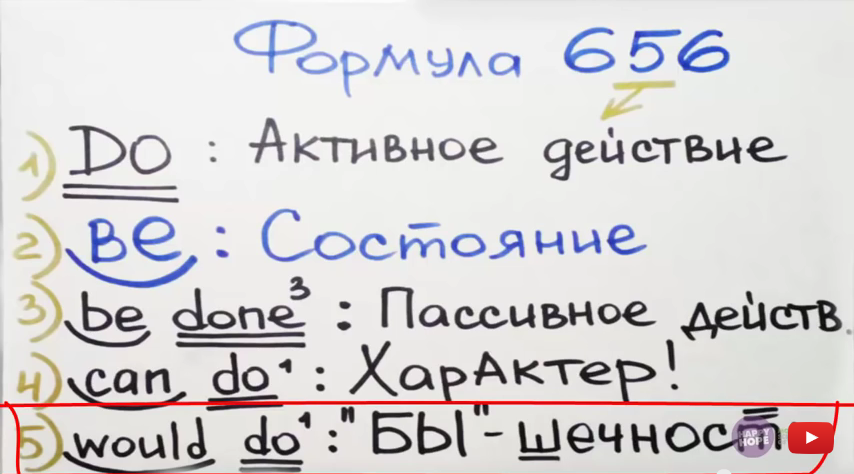 Формула 656
1) DO : Активное действие
2) Be : Состояние
3) be done³ : Пассивное действ.
4) can do¹ : Характер!
5) would do¹ : "БЫ"-шечнос
HAPPY
HOPE